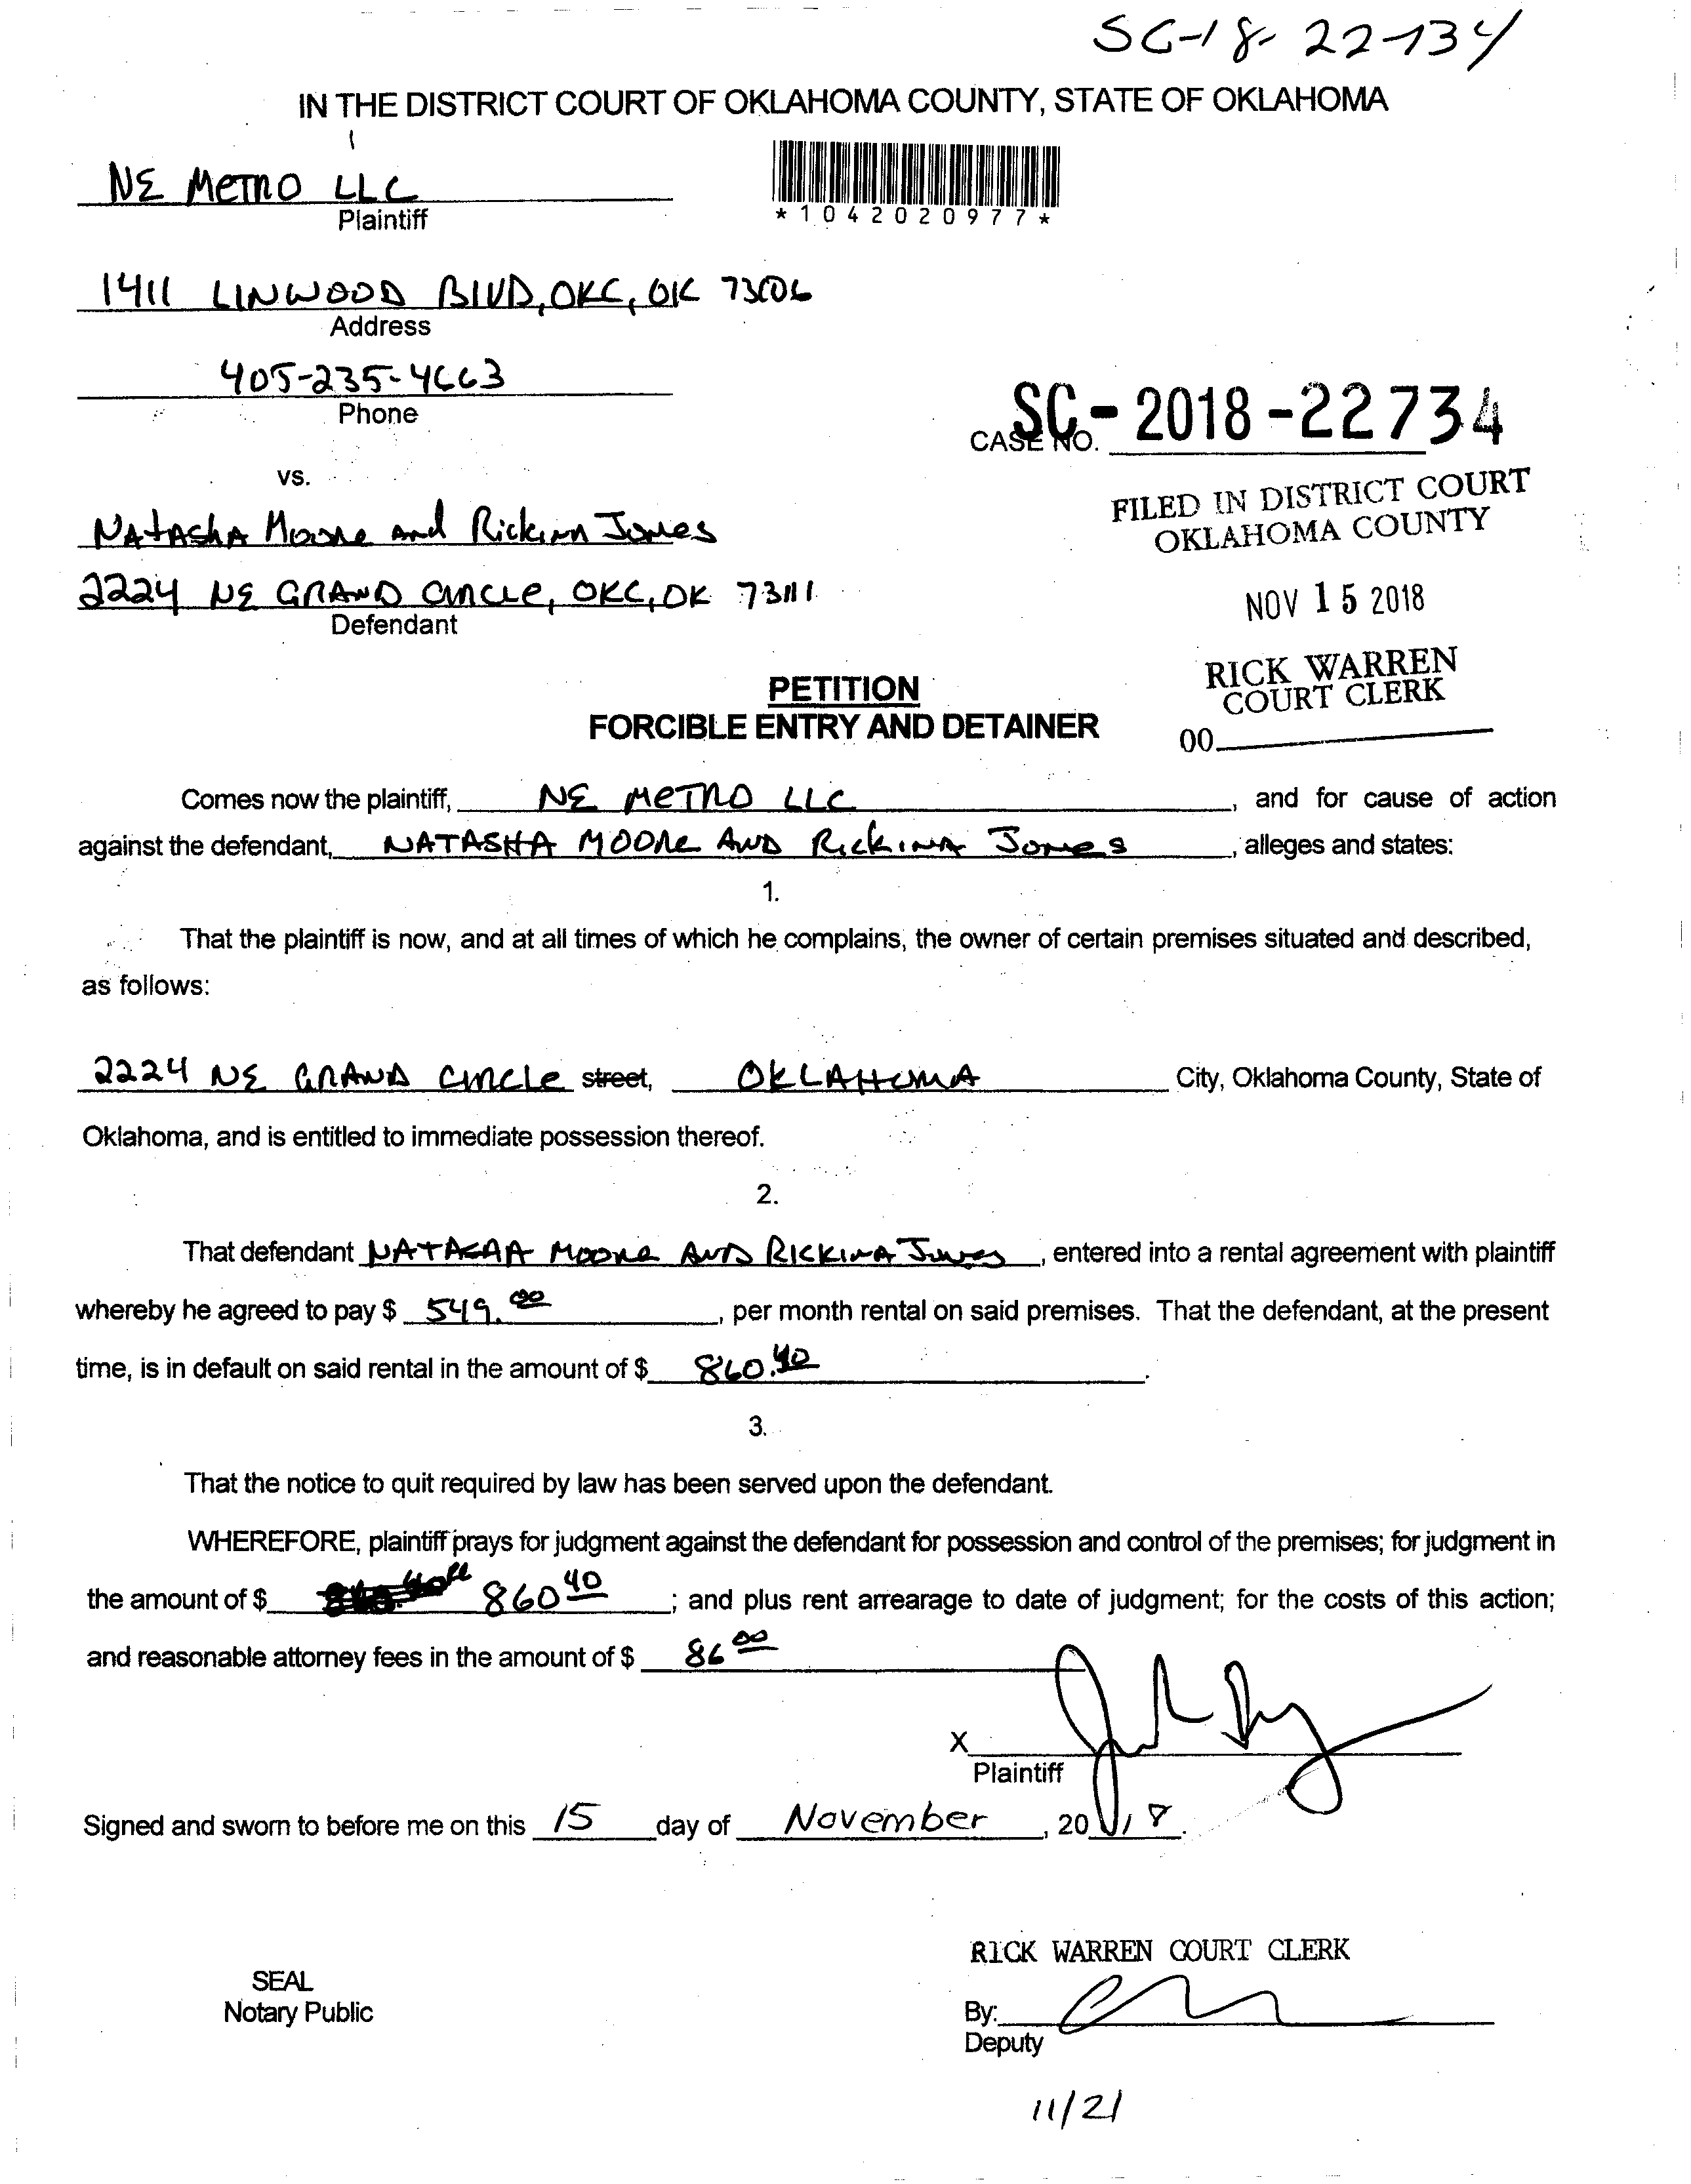 SC-18-22734
IN THE DISTRICT COURT OF OKLAHOMA COUNTY, STATE OF OKLAHOMA
NE METRO LLC
Plaintiff
*1042020977*
1411 LINWOOD BLVD, OKC, OK 73106
Address
405-235-4663
Phone
SC-2018-22734
CASE NO.
vs.
FILED IN DISTRICT COURT
OKLAHOMA COUNTY
Natasha Moore and Rickina Jones
2224 NE GRAND CIRCLE, OKC, OK 73111
Defendant
NOV 15 2018
RICK WARREN
COURT CLERK
00
PETITION
FORCIBLE ENTRY AND DETAINER
Comes now the plaintiff, NE METRO LLC, and for cause of action
against the defendant, NATASHA MOORE AND RickINA Jones, alleges and states:
1.
That the plaintiff is now, and at all times of which he complains, the owner of certain premises situated and described,
as follows:
2224 NE GRAND CIRCLE street, OKLAHOMA City, Oklahoma County, State of
Oklahoma, and is entitled to immediate possession thereof.
2.
That defendant MOORE AND RICKINA Jones, entered into a rental agreement with plaintiff
whereby he agreed to pay $ 549.00, per month rental on said premises. That the defendant, at the present
time, is in default on said rental in the amount of $ 860.40.
3.
That the notice to quit required by law has been served upon the defendant.
WHEREFORE, plaintiff prays for judgment against the defendant for possession and control of the premises; for judgment in
the amount of $ 860 40; and plus rent arrearage to date of judgment; for the costs of this action;
and reasonable attorney fees in the amount of $ 86 00
X
Plaintiff
Signed and sworn to before me on this 15 day of November, 2018.
RICK WARREN COURT CLERK
SEAL
Notary Public
By:
Deputy
11/21